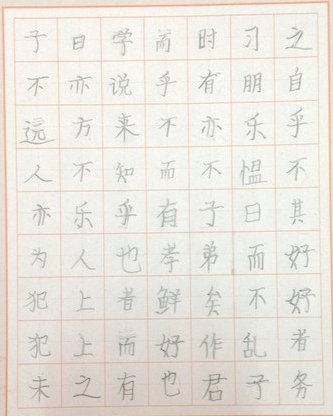 子日学而时习之
不亦说乎有朋自
远方来不亦乐乎
人不知而不愠不
亦乐乎有子日其
为人也孝弟而好
犯上者鲜矣不好
犯上而好作乱者
未之有也君子务